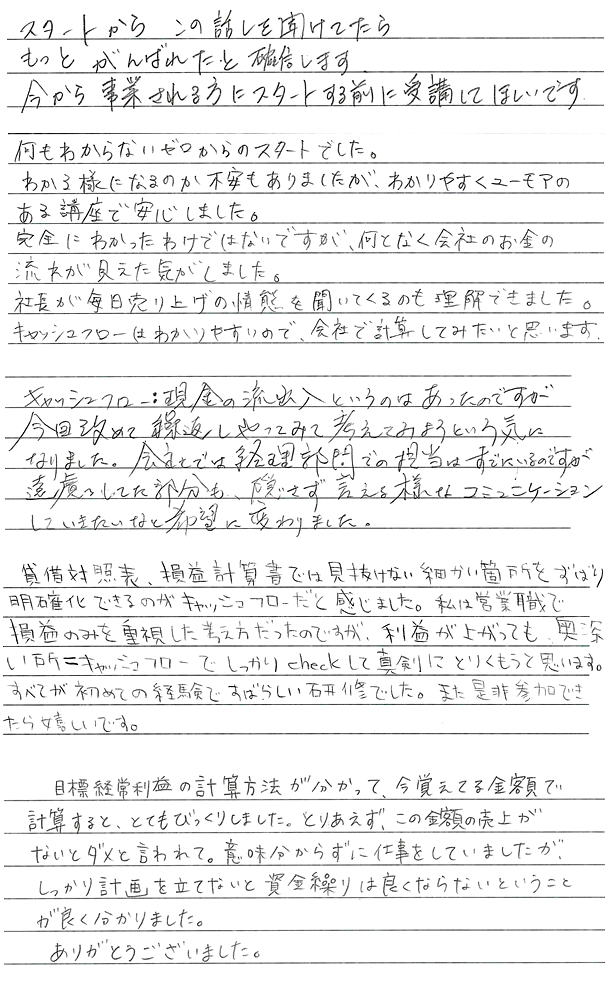 スタートから この話しを聞けてたら
もっと がんばれたと確信します
今から事業される方にスタートする前に受講してほしいです
何もわからないゼロからのスタートでした。
わかる様になるのか不安もありましたが、わかりやすくユーモアの
ある講座で安心しました。
完全にわかったわけではないですが、何となく会社のお金の
流れが見えた気がしました。
社長が毎日売り上げの情態を聞いてくるのも理解できました。
キャッシュフローはわかりやすいので、会社で計算してみたいと思います.
キャッシュフロー:現金の流出入というのはあったのですが
今回改めて繰返しやってみて考えてみようという気に
なりました。会社では経理部門での担当はすでにいるのですが
遠慮してた部分も、隠さず言える様なコミュニケーション
していきたいなと希望に変わりました。
貸借対照表、損益計算書では見抜けない細かい箇所をずばり
明確化できるのがキャッシュフローだと感じました。私は営業職で
損益のみを重視した考え方だったのですが、利益が上がっても、奥深
い所=キャッシュフローでしっかりcheckして真剣にとりくもうと思います。
すべてが初めての経験ですばらしい研修でした。また是非参加でき
たら嬉しいです。
目標経常利益の計算方法が分かって、今覚えてる金額で
計算すると、とてもびっくりしました。とりあえず、この金額の売上が
ないとダメと言われて。意味分からずに仕事をしていましたが、
しっかり計画を立てないと資金繰りは良くならないということ
が良く分かりました。
ありがとうございました。